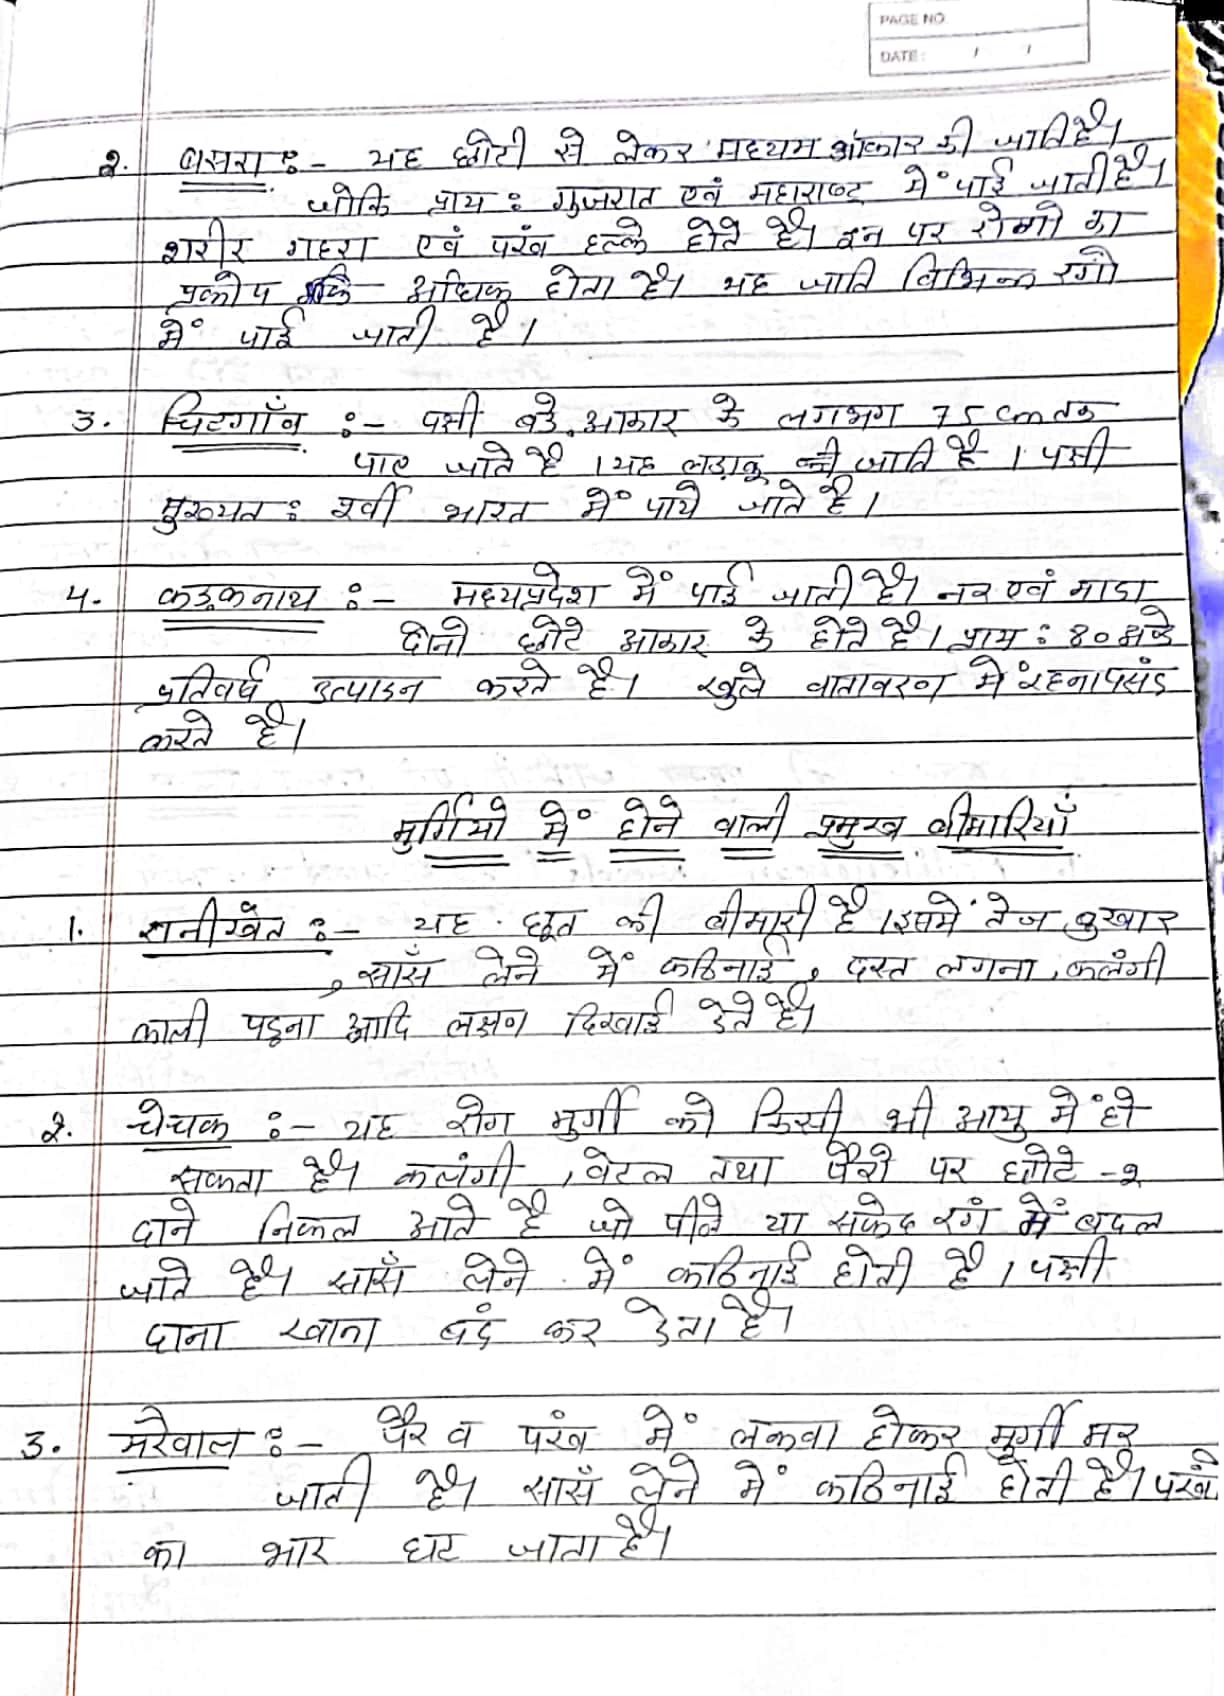 PAGE NO.
DATE: / /
2. बसरा :- यह छोटी से लेकर मध्यम आकार की जाति है।
जोकि प्राय: गुजरात एवं महाराष्ट्र में पाई जाती है।
शरीर गहरा एवं पंख हल्के होते है। इन पर रोगो का
प्रकोप अधिक होता है। यह जाति विभिन्न रंगो
में पाई जाती है।
3. चिटगाँव :- पक्षी बडे आकार के लगभग 75 cm तक
पाए जाते है । यह लड़ाकू की जाति है । पक्षी
मुख्यत: पूर्वी भारत में पाये जाते है।
4. कड़कनाथ :- मध्यप्रदेश में पाई जाती है। नर एवं मादा
दोनो छोटे आकार के होते है। प्राय: 80 अंडे
प्रतिवर्ष उत्पादन करते है। खुले वातावरण में रहना पसंद
करते है।
मुर्गियो में होने वाली प्रमुख बीमारियाँ
1. रानीखेत :- यह छूत की बीमारी है । इसमें तेज बुखार
, साँस लेने में कठिनाई, दस्त लगना, कलंगी
काली पड़ना आदि लक्षण दिखाई देते है।
2. चेचक :- यह रोग मुर्गी को किसी भी आयु में हो
सकता है। कलंगी, वेटल तथा पैरो पर छोटे -2
दाने निकल आते है जो पीले या सफेद रंग में बदल
जाते है। साँस लेने में कठिनाई होती है । पक्षी
दाना खाना बंद कर देता है।
3. मरेवाल :- पैर व पंख में लकवा होकर मुर्गी मर
जाती है। साँस लेने में कठिनाई होती है। पंखो
का भार घट जाता है।